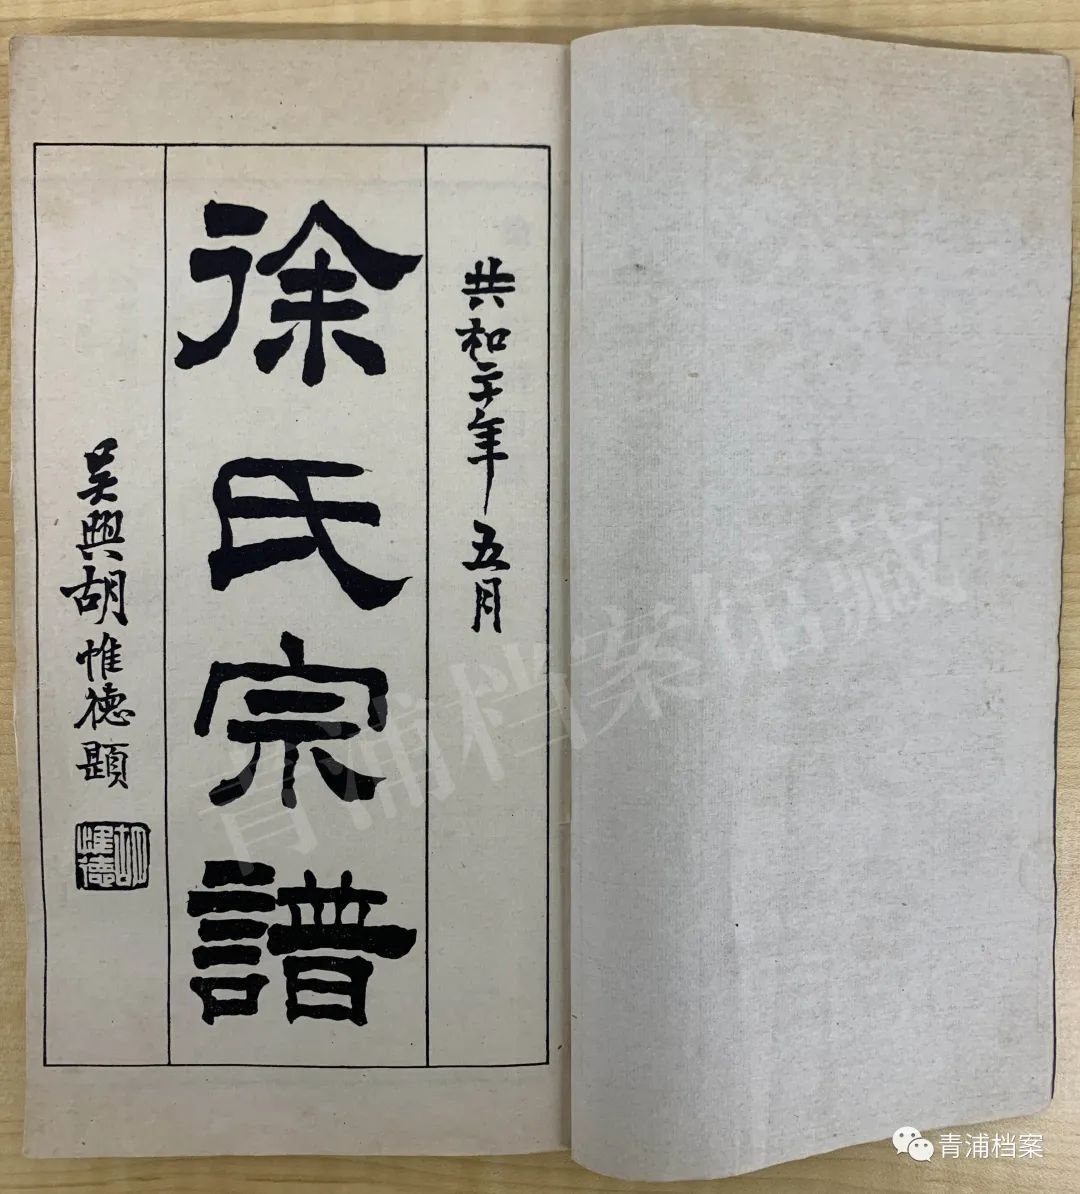 共和二十年五月
徐氏宗譜
吴興胡惟德題
胡惟德
青浦档案馆藏
青浦档案